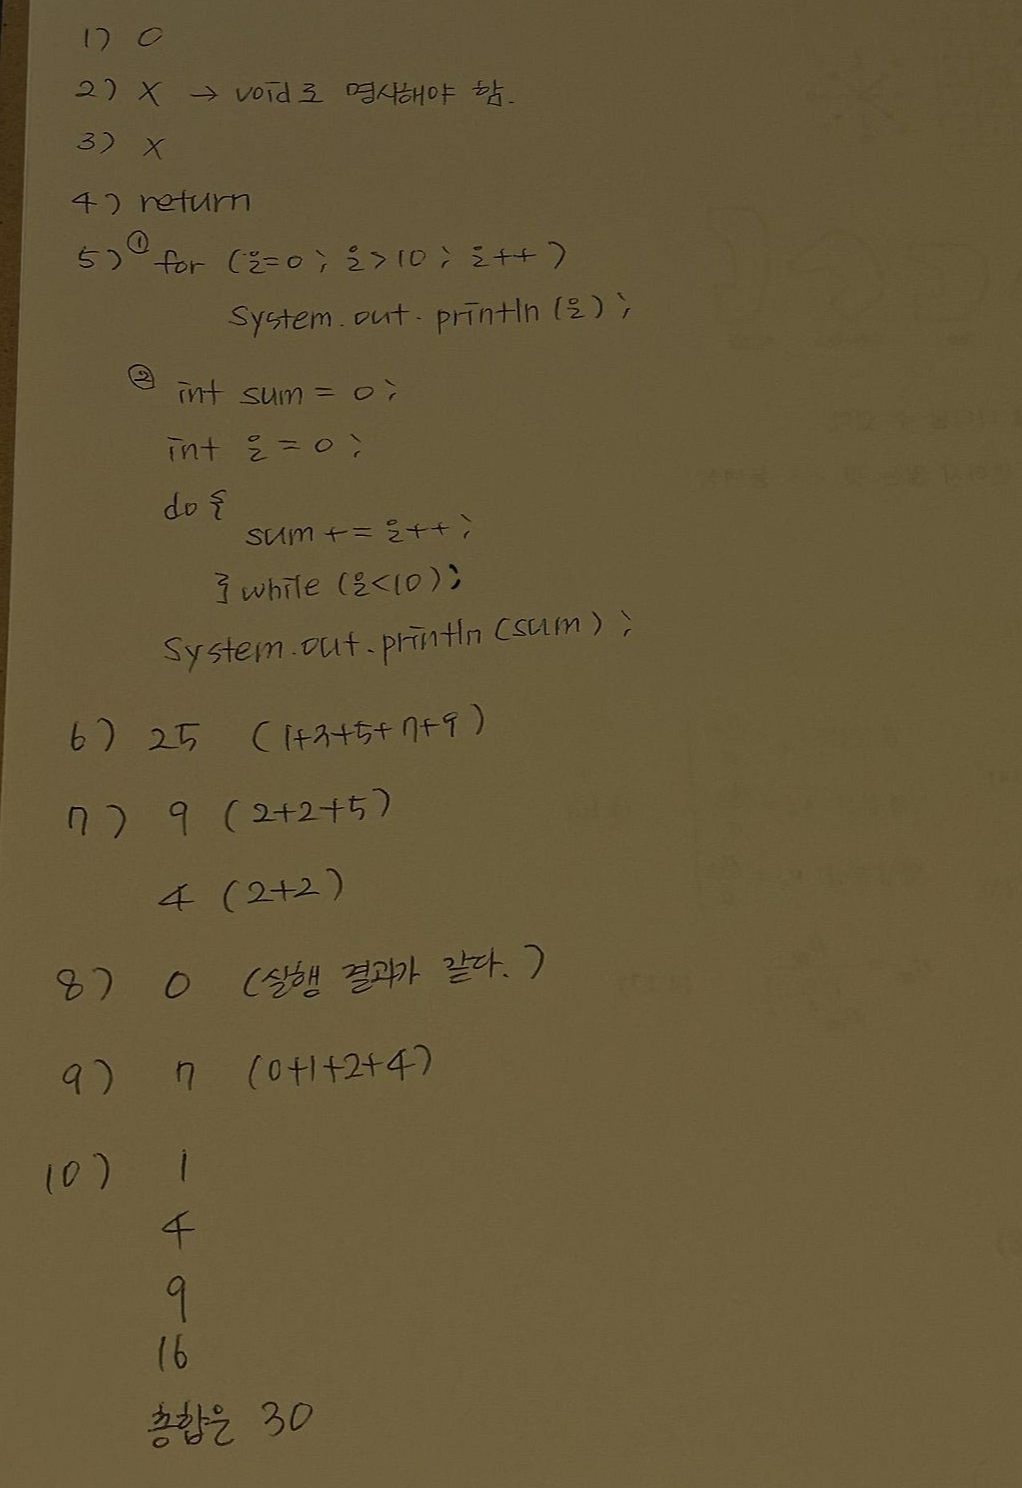 1) O
2) X → void로 명시해야 함.
3) X
4) return
5) ① for (i=0; i>10; i++)
System.out.println(i);
② int sum = 0;
int i = 0;
do {
sum += i++;
} while (i<10);
System.out.println(sum);
6) 25 (1+3+5+7+9)
7) 9 (2+2+5)
4 (2+2)
8) O (실행 결과가 같다.)
9) 7 (0+1+2+4)
10) 1
4
9
16
총합은 30